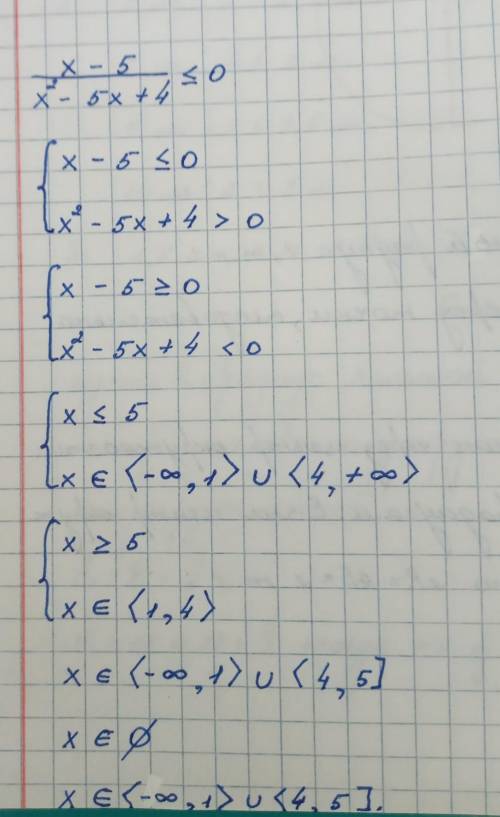 x - 5
x² - 5x + 4 ≤ 0
x - 5 ≤ 0
x² - 5x + 4 > 0
x - 5 ≥ 0
x² - 5x + 4 < 0
x ≤ 5
x ∈ ⟨-∞, 1⟩ ∪ ⟨4, +∞⟩
x ≥ 5
x ∈ ⟨1, 4⟩
x ∈ ⟨-∞, 1⟩ ∪ ⟨4, 5]
x ∈ ∅
x ∈ ⟨-∞, 1⟩ ∪ ⟨4, 5].